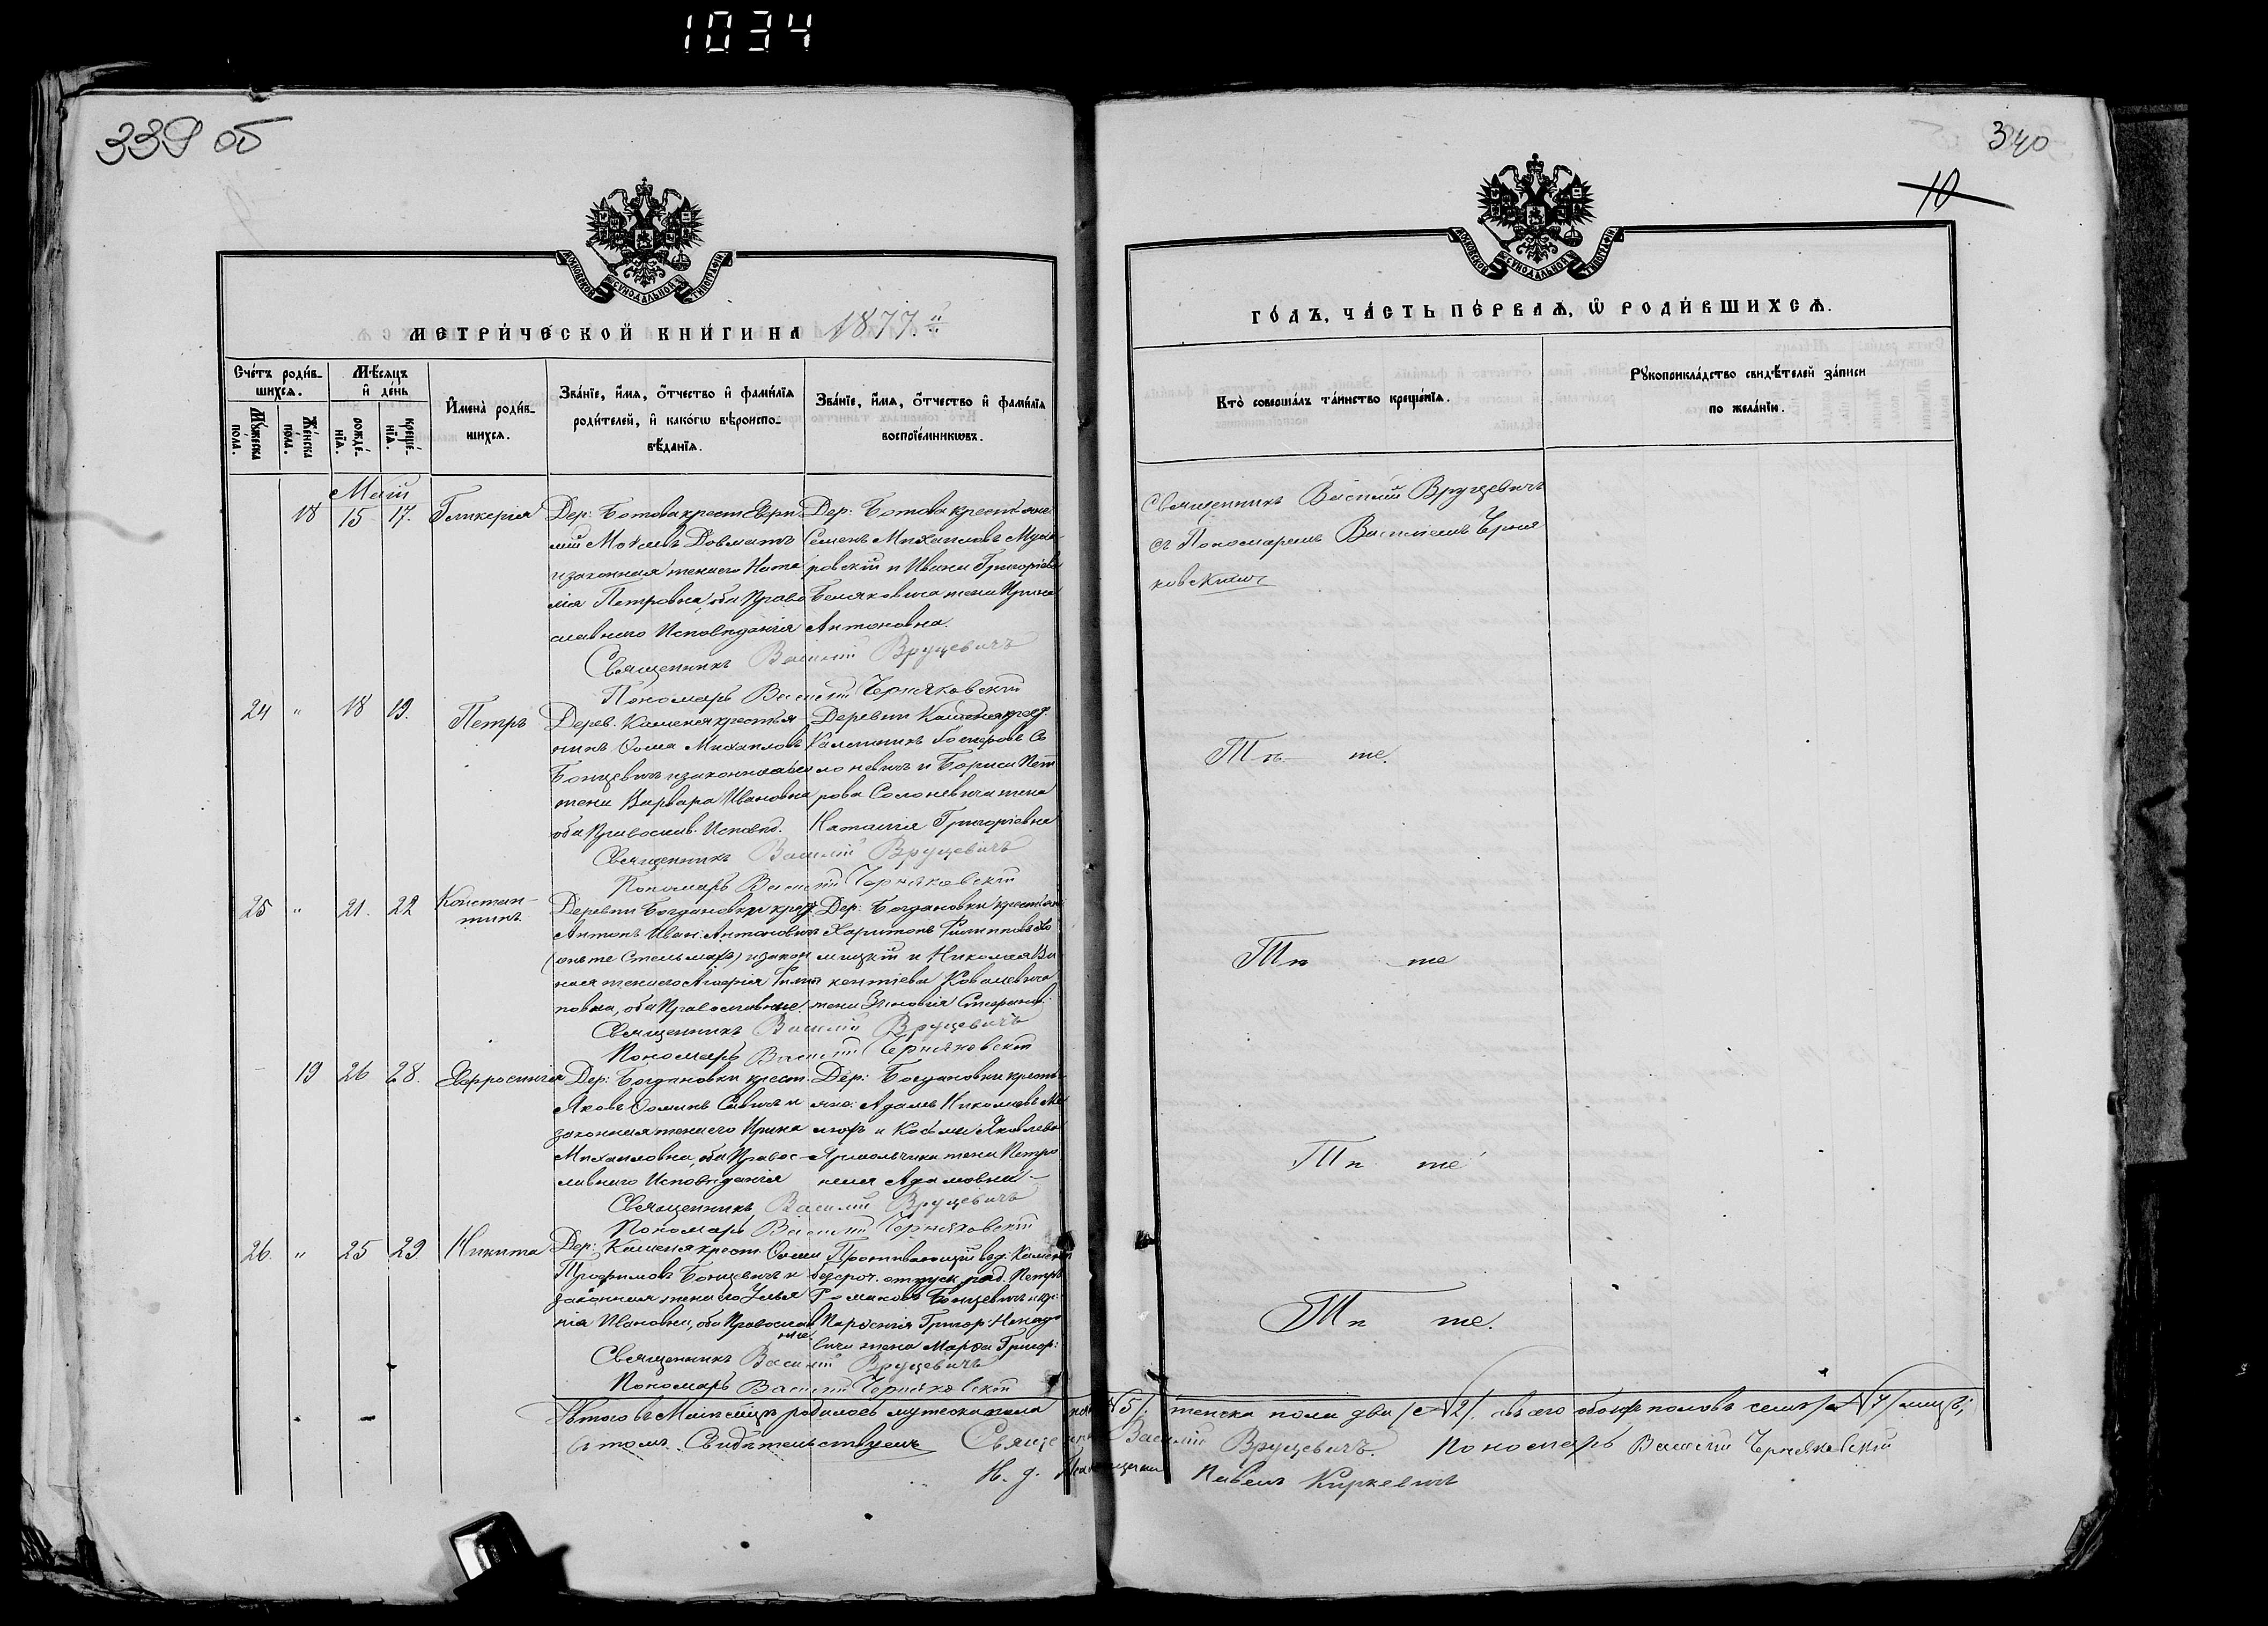 1034
339 об
340
10
МОСКОВСКОЙ СѴНОДАЛЬНОЙ ТИПОГРАФІИ
МОСКОВСКОЙ СѴНОДАЛЬНОЙ ТИПОГРАФІИ
МЕТРИ́ЧЕСКОЙ КНИ́ГИ НА 1877.й
ГО́ДЪ, ЧА́СТЬ ПЕ́РВАѦ, Ѡ҆ РОДИ́ВШИХСѦ.
Сче́тъ роди́в-
шихсѧ.
Мꙋ́жеска
по́ла.
Же́нска
по́ла.
Мѣ́сѧцъ
и҆ де́нь
рожде́-
нїѧ.
креще́-
нїѧ.
И҆мена̀ роди́в-
шихсѧ.
Зва́нїе, и҆́мѧ, ѻ҆́тчество и҆ фами́лїѧ
роди́телей, и҆ како́гѡ вѣроиспо-
вѣ́данїѧ.
Зва́нїе, и҆́мѧ, ѻ҆́тчество и҆ фами́лїѧ
воспрїе́мникѡвъ.
Кто̀ соверша́лъ та́инство креще́нїѧ.
Рꙋкоприкла́дство свидѣ́телей за́писи
по жела́нїю.
Май
18 15 17. Гликерія
Дер: Ботова крест. Еври
мій Мовсѣъ Довматъ
и законная жена его Ната
лія Петровна, оба Право
славнаго Исповѣданія
Дер: Ботова крестьяне
Семенъ Михаиловъ
ровскій и Ивана Григоріева
Беляковича жена Ирина
Антоновна.
Священникъ Василій Вруцевичъ
Пономарь Василій Черняковскій
Священникъ Василій Вруцевичъ
съ Пономаремъ Василіемъ Черня
ковскимъ
24 " 18 19. Петръ
Дерев. Каменя крестья
нинъ Ѳома Михаиловъ
Бонцевичъ и законная его
жена Варвара Ивановна
оба Православ. Исповѣд.
Деревни Каменя крест.
Калинникъ Со
лоневичъ и Бориса Пет
рова Солоневича жена
Наталія Григоріевна
Священникъ Василій Вруцевичъ
Пономарь Василій Черняковскій
Тѣ же.
25 " 21. 22 Констан-
тинъ
Деревни Богдановки крест.
Антонъ Иван. Антоновичъ
(онъ же Стельмахъ) и закон
ная жена его Агафія Филип
повна, оба Православные.
Дер: Богдановки крестьяне
Харитонъ Филипповъ Хо
мицкій и Николая Ви
кентіева Ковалевича
жена Зиновія Стефанов.
Священникъ Василій Вруцевичъ
Пономарь Василій Черняковскій
Тѣ же
19 26 28. Ефросинія
Дер: Богдановки крест.
Яковъ Ѳоминъ Савичъ и
законная жена его Ирина
Михаиловна, оба Правос-
лавнаго Исповѣданія
Дер: Богдановки кресть
яне: Адамъ Николаевъ
и Косьмы Яковлева
Ярмольчика жена Петро
нелія Адамовна.
Священникъ Василій Вруцевичъ
Пономарь Василій Черняховскій
Тѣ же
26. " 25 29 Никита
Дер: Каменя крест. Ѳома
Трофимовъ Бонцевичъ и
законная жена его Улья
нія Ивановна, оба Православ
ные
Проживающій въ д: Каменя
безсроч. отпуск. ряд. Петръ
Романовъ Бонцевичъ и кр.
Григор:
вича жена Марѳа Григор:
Священникъ Василій Вруцевичъ
Пономарь Василій Черняковскій
Тѣ же.
Итого въ Маѣ мѣсяцѣ родилось мужеска пола №5/. женска пола два /№2/. а всего обоихъ половъ семь /№7/ лицъ;
въ томъ Свидѣтельствуемъ Священникъ Василій Вруцевичъ. Пономарь Василій Черняковскій
И. д. Псаломщика Павелъ Киркевичъ